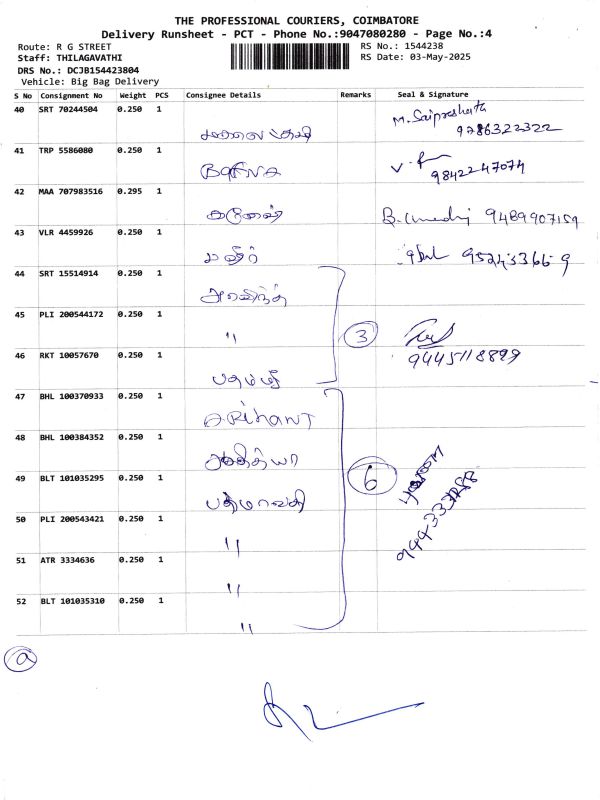 THE PROFESSIONAL COURIERS, COIMBATORE
Delivery Runsheet - PCT - Phone No.:9047080280 - Page No.:4
Route: R G STREET
Staff: THILAGAVATHI
DRS No.: DCJB154423804
Vehicle: Big Bag Delivery
RS No.: 1544238
RS Date: 03-May-2025
S No Consignment No Weight PCS Consignee Details Remarks Seal & Signature
40 SRT 70244504 0.250 1
9786322322
41 TRP 5586080 0.250 1
9842247074
42 MAA 707983516 0.295 1 கணேஷ்
9489907159
43 VLR 4459926 0.250 1
44 SRT 15514914 0.250 1 அரவிந்த்
45 PLI 200544172 0.250 1 "
3
46 RKT 10057670 0.250 1
9445118899
47 BHL 100370933 0.250 1 ARihANT
48 BHL 100384352 0.250 1 ஆதித்யா
49 BLT 101035295 0.250 1 பத்மாவதி
6
50 PLI 200543421 0.250 1 "
51 ATR 3334636 0.250 1 "
52 BLT 101035310 0.250 1 "